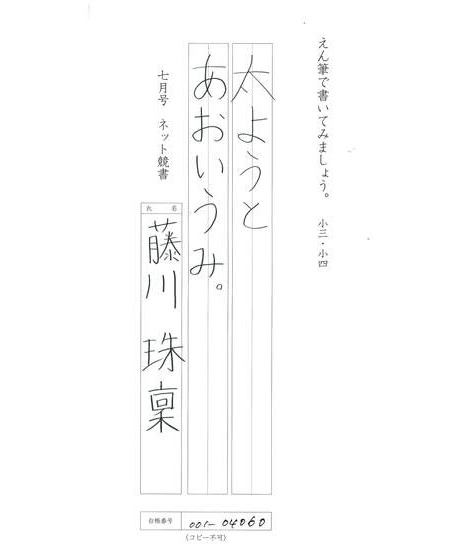 えん筆で書いてみましょう。 小三・小四
太ようと
あおいうみ。
七月号 ネット競書
氏名
藤川 珠稟
台帳番号 001-04060
(コピー不可)